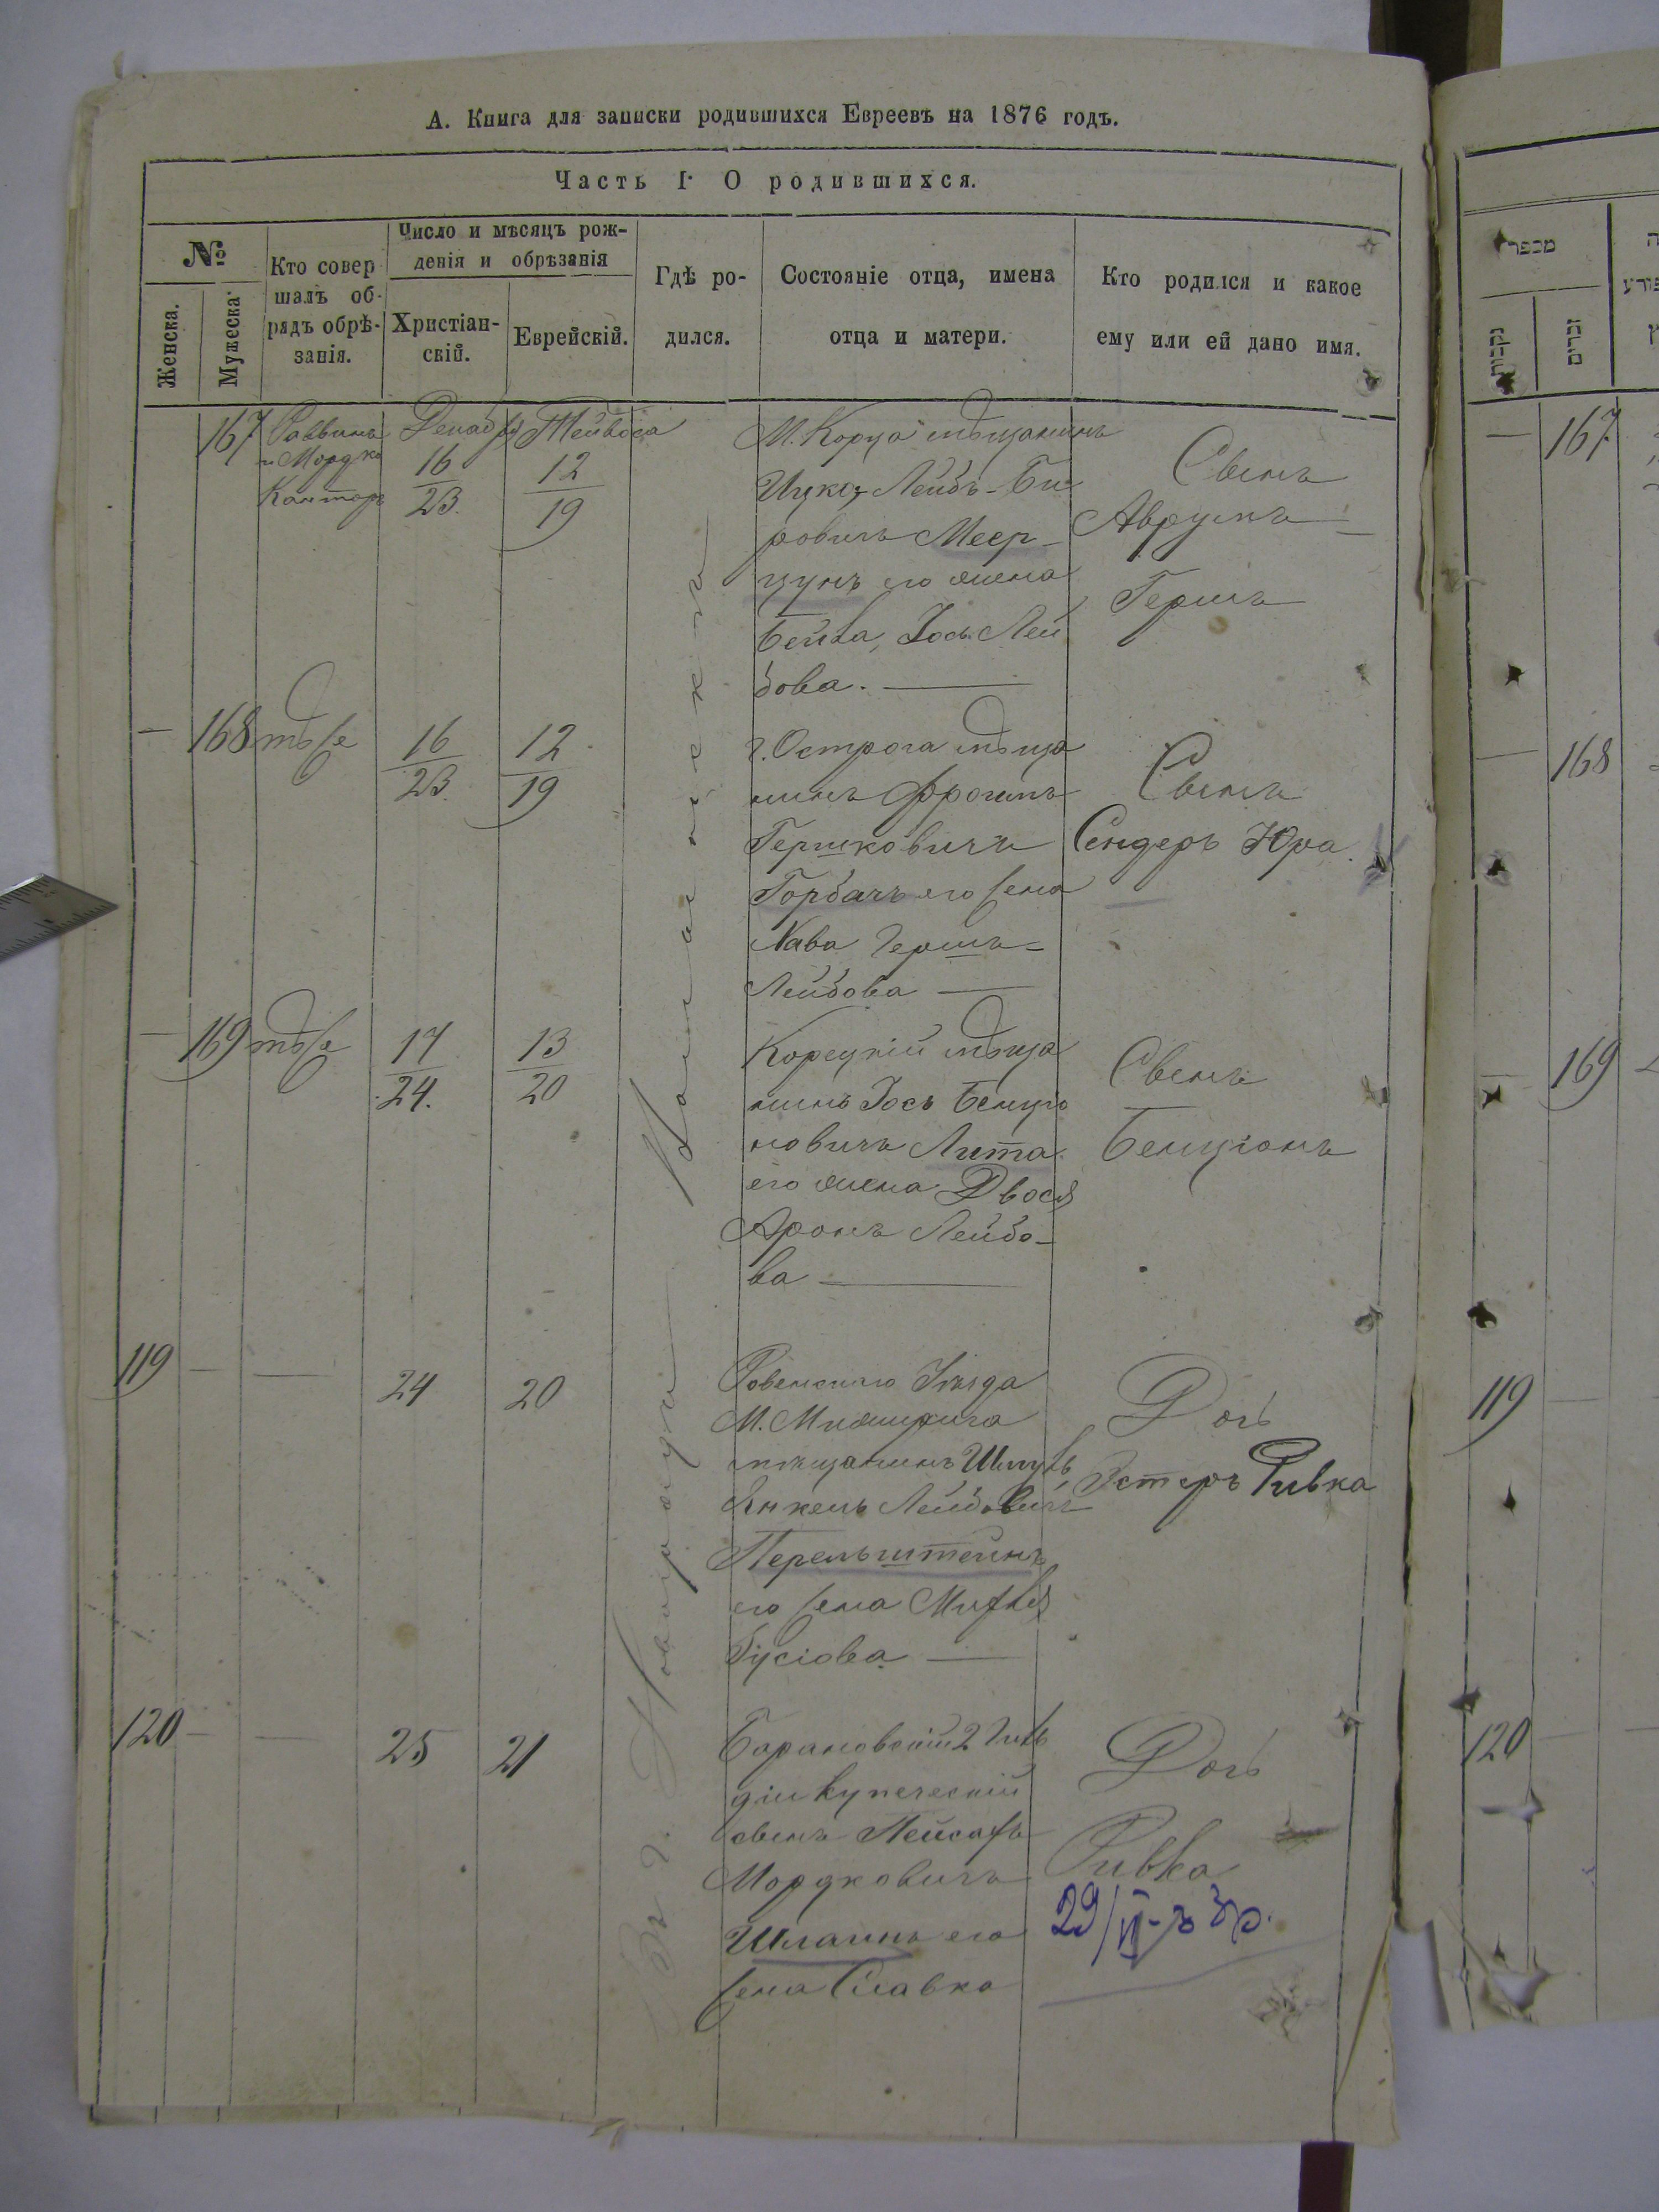 А. Книга для записки родившихся Евреевъ на 1876 годъ.
Часть I. О родившихся.
№
Женска.
Мужеска.
Кто совер
шалъ об-
рядъ обрѣ-
занія.
Число и мѣсяцъ рож-
денія и обрѣзанія
Христіан-
скій.
Еврейскій.
Гдѣ ро-
дился.
Состояніе отца, имена
отца и матери.
Кто родился и какое
ему или ей дано имя.
167
Раввинъ
и Мордко
Канторъ
Декабря
16
23.
Тейвеса
12
19
М. Корца мѣщанинъ
Ицко, Лейбъ-Бе
ровичъ Меер-
цунъ его жена
Бейла, Іось Лей
бова.
Сынъ
Аврумъ
Гершъ
— 168 тоже
16
23.
12
19
г. Острога мѣща
нинъ Фроимъ
Гершковичъ
Горбачъ его жена
Хава Гершъ-
Лейбова —
Сынъ
Сендеръ Юра.
— 169 тоже
17
24.
13
20
Корецкій мѣща
нинъ Іось Бенціо
новичъ Лита
его жена Двося
Аронъ Лейбо-
ва —
Сынъ
Бенціонъ
119 — —
24
20
Ровенскаго Уѣзда
М. Межирича
мѣщанинъ Шмуль
Янкель Лейбовичъ
Перельштейнъ
его жена Михля
Гусіова —
Дочь
Эстеръ Ривка
120 — —
25
21
Барановскій 2 Гиль
діи купеческій
сынъ Пейсахъ
Мордковичъ
его
жена Славка
Дочь
Ривка
29/
Въ г. Новоградъ
מספר
נקבות
זכרים
167.
168
169
119
120